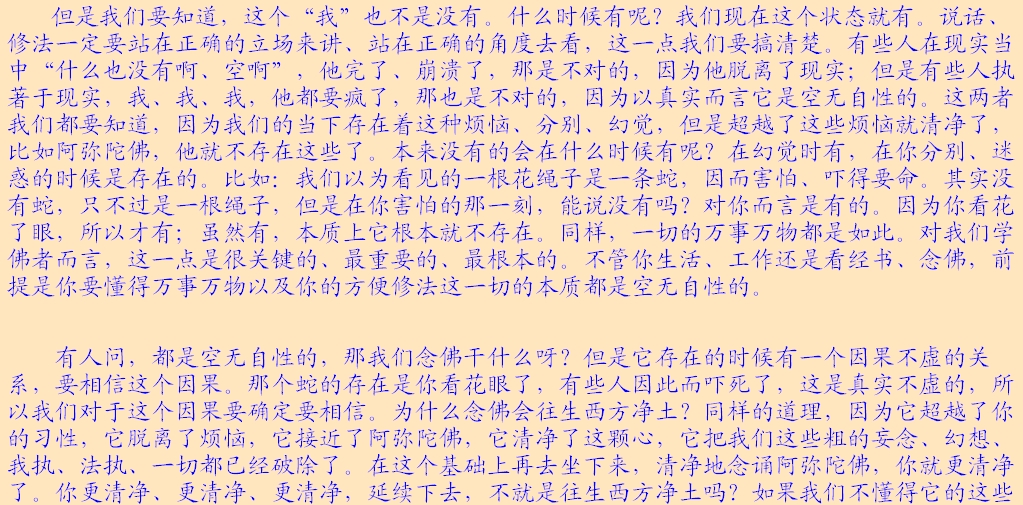 但是我们要知道，这个“我”也不是没有。什么时候有呢？我们现在这个状态就有。说话、
修法一定要站在正确的立场来讲、站在正确的角度去看，这一点我们要搞清楚。有些人在现实当
中“什么也没有啊、空啊”，他完了、崩溃了，那是不对的，因为他脱离了现实；但是有些人执
著于现实，我、我、我，他都要疯了，那也是不对的，因为以真实而言它是空无自性的。这两者
我们都要知道，因为我们的当下存在着这种烦恼、分别、幻觉，但是超越了这些烦恼就清净了，
比如阿弥陀佛，他就不存在这些了。本来没有的会在什么时候有呢？在幻觉时有，在你分别、迷
惑的时候是存在的。比如：我们以为看见的一根花绳子是一条蛇，因而害怕、吓得要命。其实没
有蛇，只不过是一根绳子，但是在你害怕的那一刻，能说没有吗？对你而言是有的。因为你看花
了眼，所以才有；虽然有，本质上它根本就不存在。同样，一切的万事万物都是如此。对我们学
佛者而言，这一点是很关键的、最重要的、最根本的。不管你生活、工作还是看经书、念佛，前
提是你要懂得万事万物以及你的方便修法这一切的本质都是空无自性的。
有人问，都是空无自性的，那我们念佛干什么呀？但是它存在的时候有一个因果不虚的关
系，要相信这个因果。那个蛇的存在是你看花眼了，有些人因此而吓死了，这是真实不虚的，所
以我们对于这个因果要确定要相信。为什么念佛会往生西方净土？同样的道理，因为它超越了你
的习性，它脱离了烦恼，它接近了阿弥陀佛，它清净了这颗心，它把我们这些粗的妄念、幻想、
我执、法执、一切都已经破除了。在这个基础上再去坐下来，清净地念诵阿弥陀佛，你就更清净
了。你更清净、更清净、更清净，延续下去，不就是往生西方净土吗？如果我们不懂得它的这些